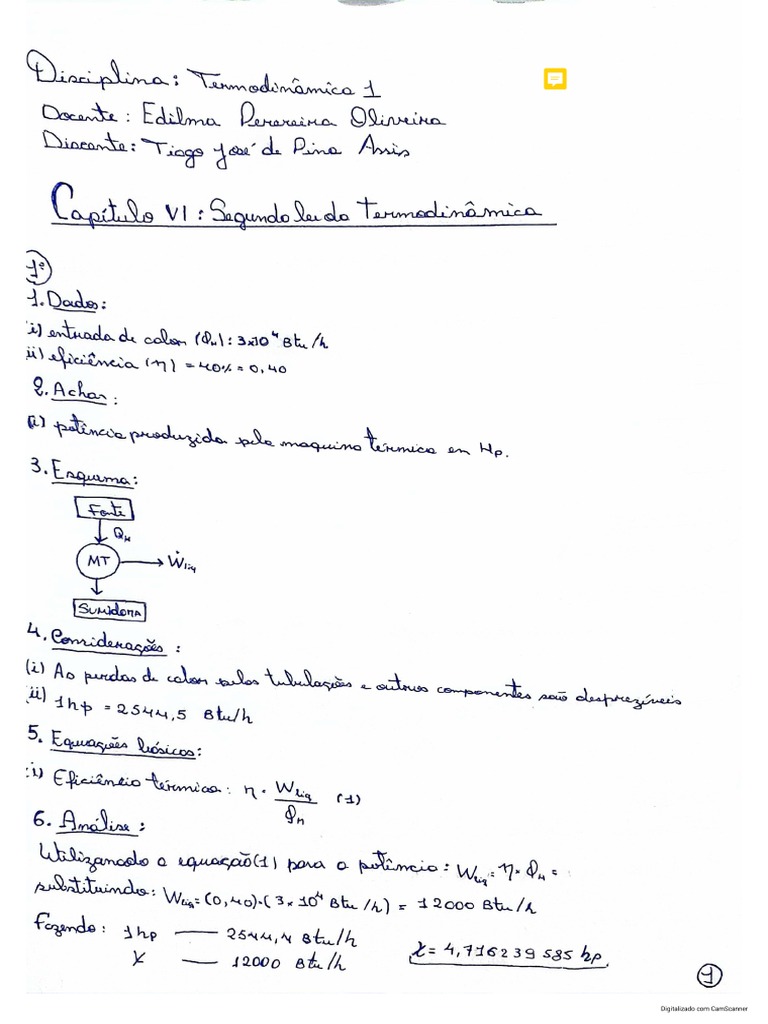 Disciplina: Termodinâmica 1
Docente: Edilma Perereira Oliveira
Discente: Tiago José de Pina Assis
Capítulo VI: Segunda lei da Termodinâmica
1º
1. Dados:
i) entrada de calor (Q_H): 3x10⁴ Btu/h
ii) eficiência (η) = 40% = 0,40
2. Achar:
(i) potência produzida pela maquina térmica em Hp.
3. Esquema:
Fonte
Q_H
MT → Ẇ_liq
Sumidora
4. Considerações:
(i) As perdas de calor pelas tubulações e outros componentes são desprezíveis
ii) 1hp = 2544,5 Btu/h
5. Equações básicas:
i) Eficiência térmica: η = W_liq / Q_H (1)
6. Análise:
Utilizando a equação(1) para a potência: W_liq = η · Q_H =
substituindo: W_liq = (0,40)·(3x10⁴ Btu/h) = 12000 Btu/h
Fazendo: 1hp — 2544,4 Btu/h
X — 12000 Btu/h X = 4,716239585 hp
1
Digitalizado com CamScanner